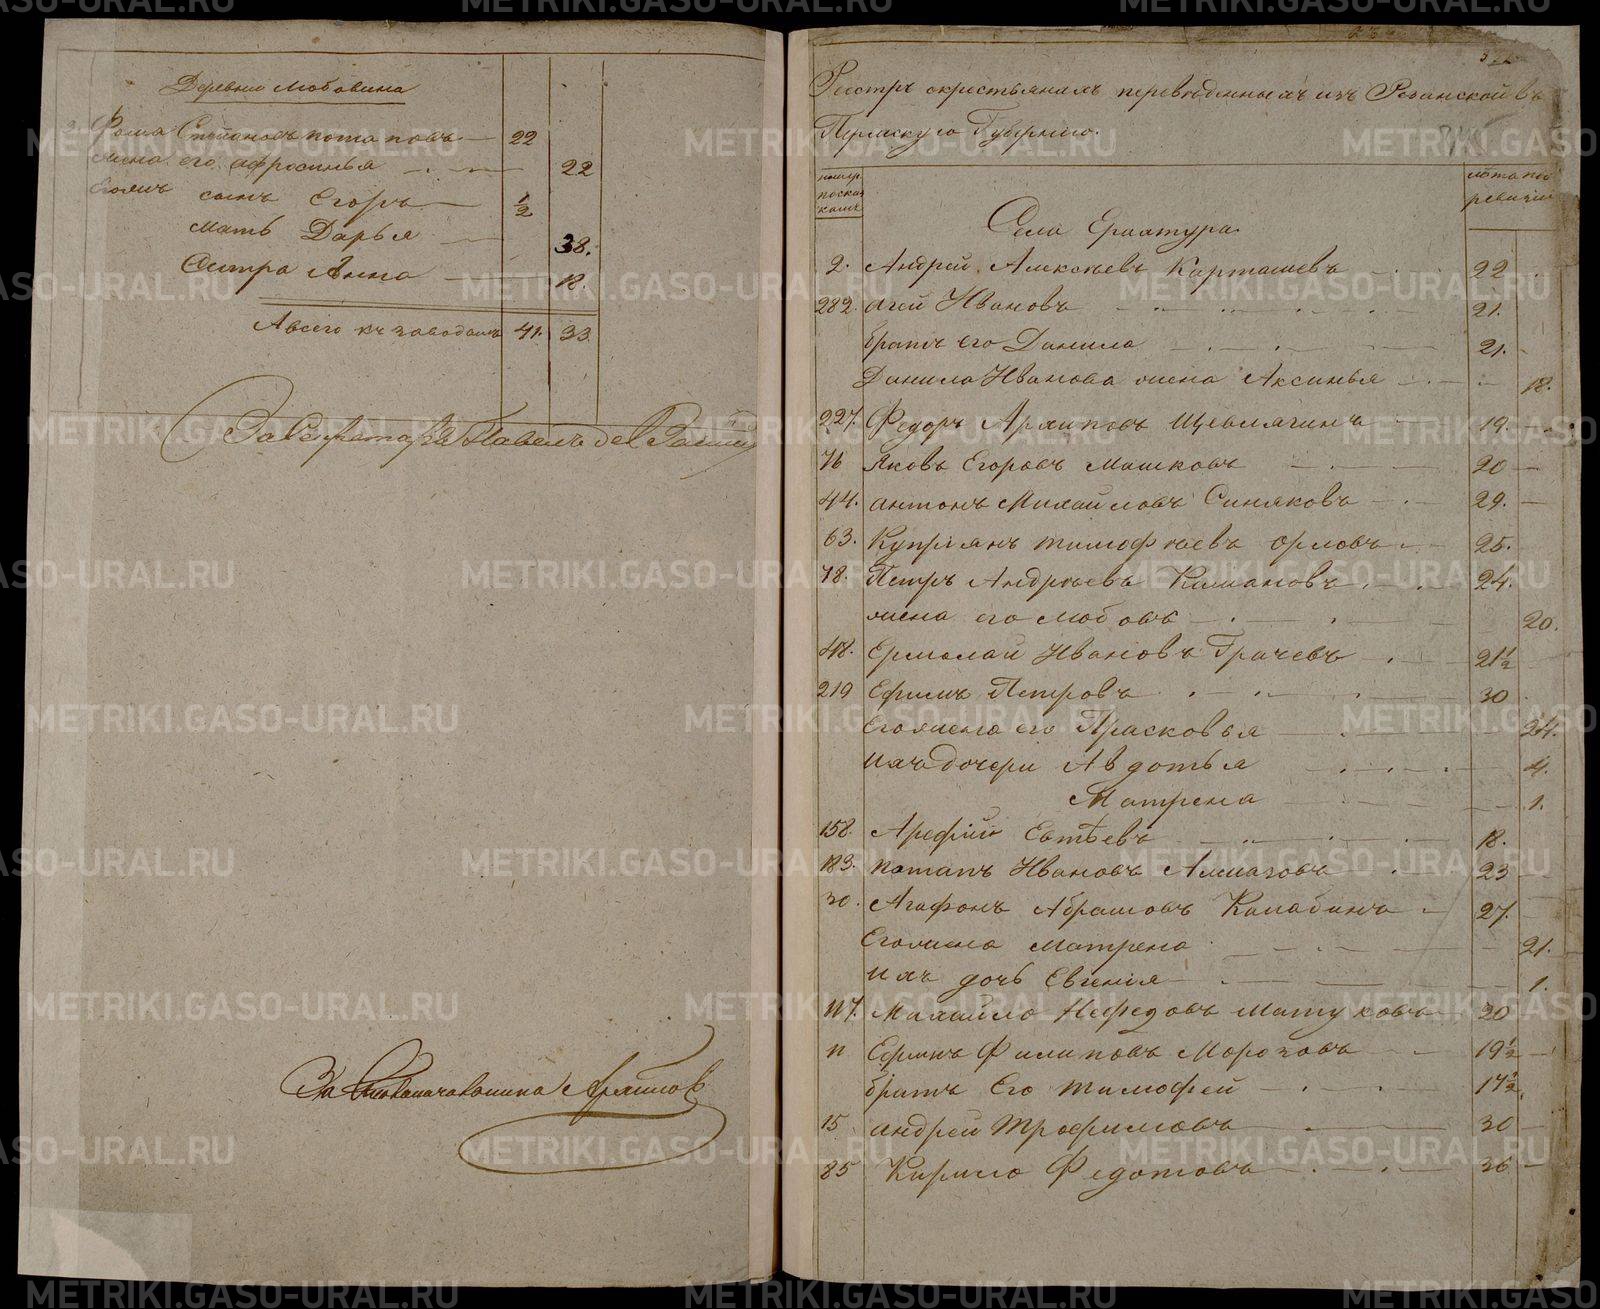 Деревни Любовина
Фома Степановъ потаповъ 22
жена его афросинья 22
сынъ Егоръ ½
мать Дарья 38.
Сестра Анна 18.
А всего къ заводамъ 41. 33
Реистръ окрестьянехъ переведенныхъ изъ Резанской въ
Пермскую Губернию.
лѣта по
ревизіи
Села Ермктура
2. Андрей Алексѣевъ Карташевъ 22
282. агей Ивановъ 21.
братъ его Данила 21.
Данила Иванова жена Аксинья 18.
227. Федоръ Архиповъ Щевлягинъ 19.
76 Яковъ Егоровъ Машковъ 20
44. антонъ Михайловъ Синяковъ 29.
63. Купріянъ тимофѣевъ орловъ 25.
78. Петръ Андрѣевъ Климановъ 24.
жена его любовь 20.
48. Ермолай Ивановъ Грачевъ 21½
219 Ефимъ Петровъ 30
Его жена его Прасковья 24.
ихъ дочери Авдотья 4.
Матрена 1.
158. Арефий Евтѣевъ 18.
183. потапъ Ивановъ Алмазовъ 23
30. Агафонъ Абрамовъ Калабинъ 27.
Его жена матрена 21.
ихъ дочь Евгенія 1.
117. Михайло Нефедовъ Матуковъ 30
11 Ефимъ Филиповъ Морозовъ 19½
братъ Его тимофей 17½
15 андрей трофимовъ 30
85 Кирило Федотовъ 36
METRIKI.GASO-URAL.RU